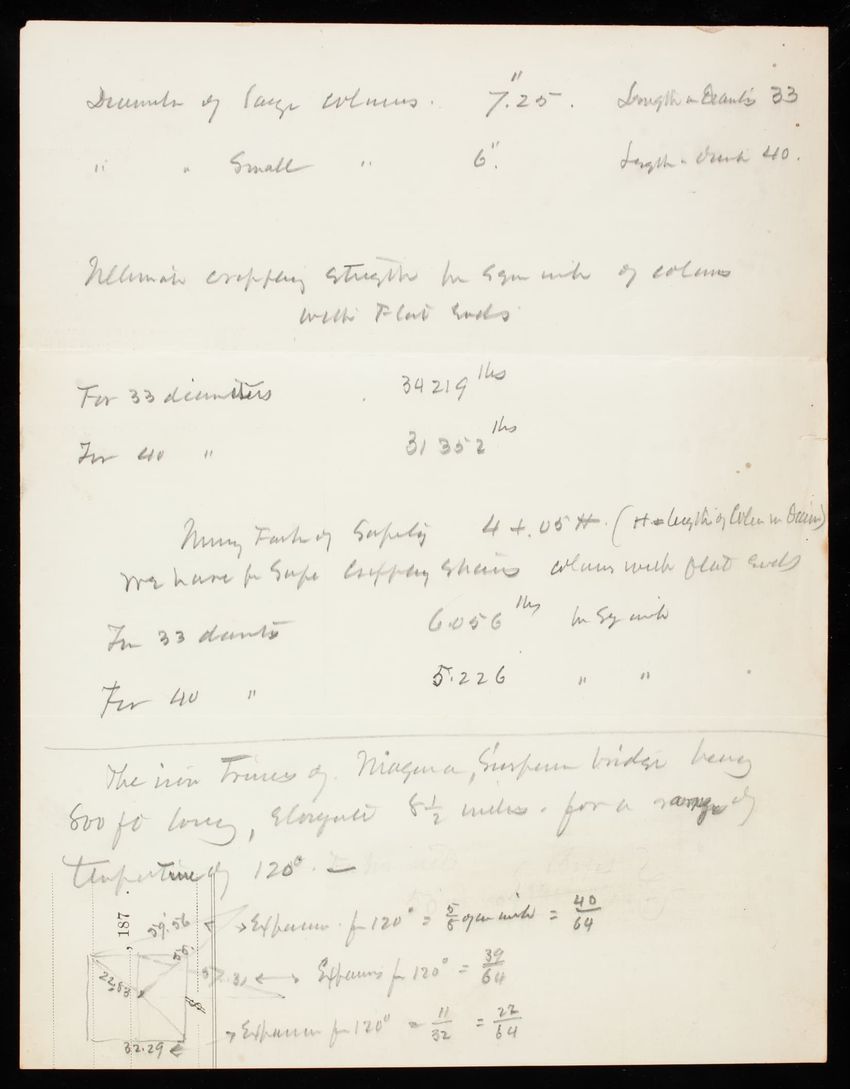 Diameter of large columns. 7.25". Length in Diamts 33
" " Small " 6". Length in diamts 40.
Ultimate crippling strength per Square inch of columns
with Flat Ends
For 33 diameters 34219 lbs
For 40 " 31352 lbs
Using Factor of Safety 4 + .05 H. (H = length of Column in Diam)
We have for Safe Crippling strains columns with flat Ends
For 33 diamts 6.056 lbs per Sq inch
For 40 " 5.226 " "
The iron Trusses of Niagara, Suspension bridge being
800 ft long, Elongate 8 1/2 inches. for a range of
Temperature of 120°. —
, 187
59.56 Expansion for 120° = 5/8 of an inch = 40/64
55.
22.83 57.31 Expansion for 120° = 39/64
32.29 Expansion for 120° = 11/32 = 22/64